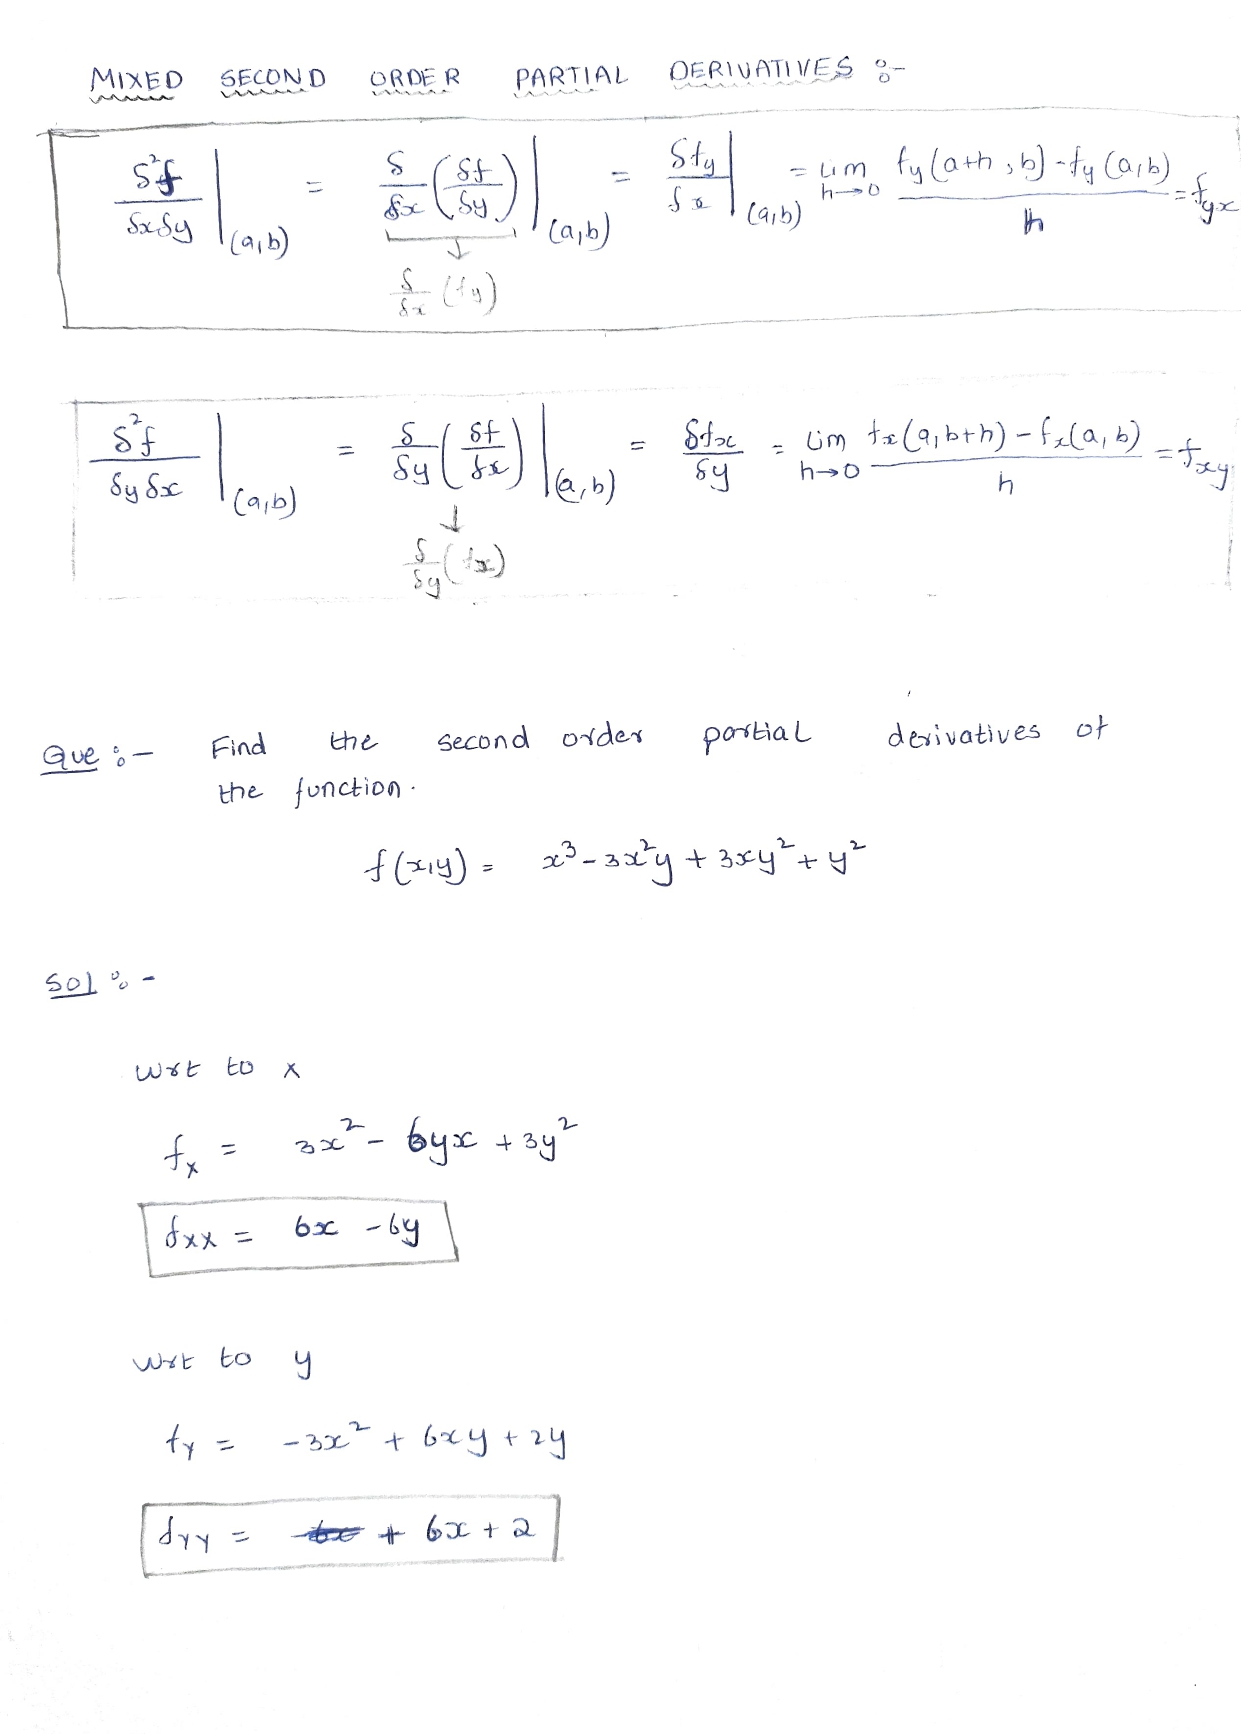 MIXED SECOND ORDER PARTIAL DERIVATIVES :-
δ²f/δxδy |(a,b) = δ/δx (δf/δy) |(a,b) = δfy/δx |(a,b) = lim h→0 fy(a+h,b)-fy(a,b)/h = fyx
↓
δ/δx (fy)
δ²f/δyδx |(a,b) = δ/δy (δf/δx) |(a,b) = δfx/δy = lim h→0 fx(a,b+h) - fx(a,b)/h = fxy
↓
δ/δy (fx)
Que :- Find the second order partial derivatives of
the function.
f(x,y) = x³ - 3x²y + 3xy² + y²
Sol :-
wrt to x
fx = 3x² - 6yx + 3y²
fxx = 6x - 6y
wrt to y
fy = -3x² + 6xy + 2y
fyy = + 6x + 2